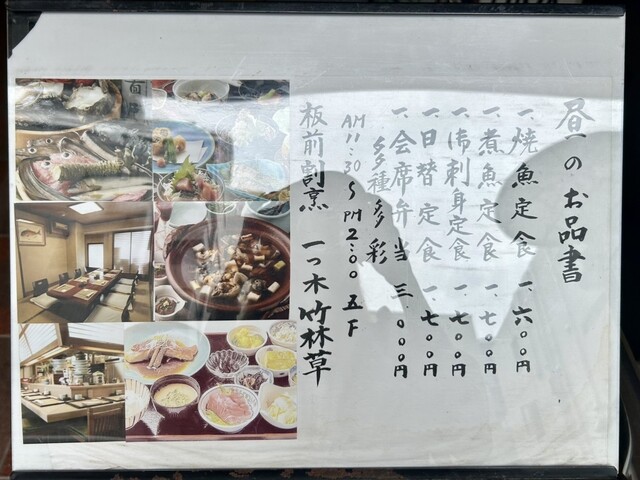 昼のお品書
一. 焼魚定食 一. 六〇〇円
一. 煮魚定食 一. 七〇〇円
一. 御刺身定食 一. 七〇〇円
一. 日替定食 一. 七〇〇円
一. 会席弁当 三. 〇〇〇円
多種多彩
AM 11:30～PM 2:00 五F
板前割烹 一つ木 竹林草